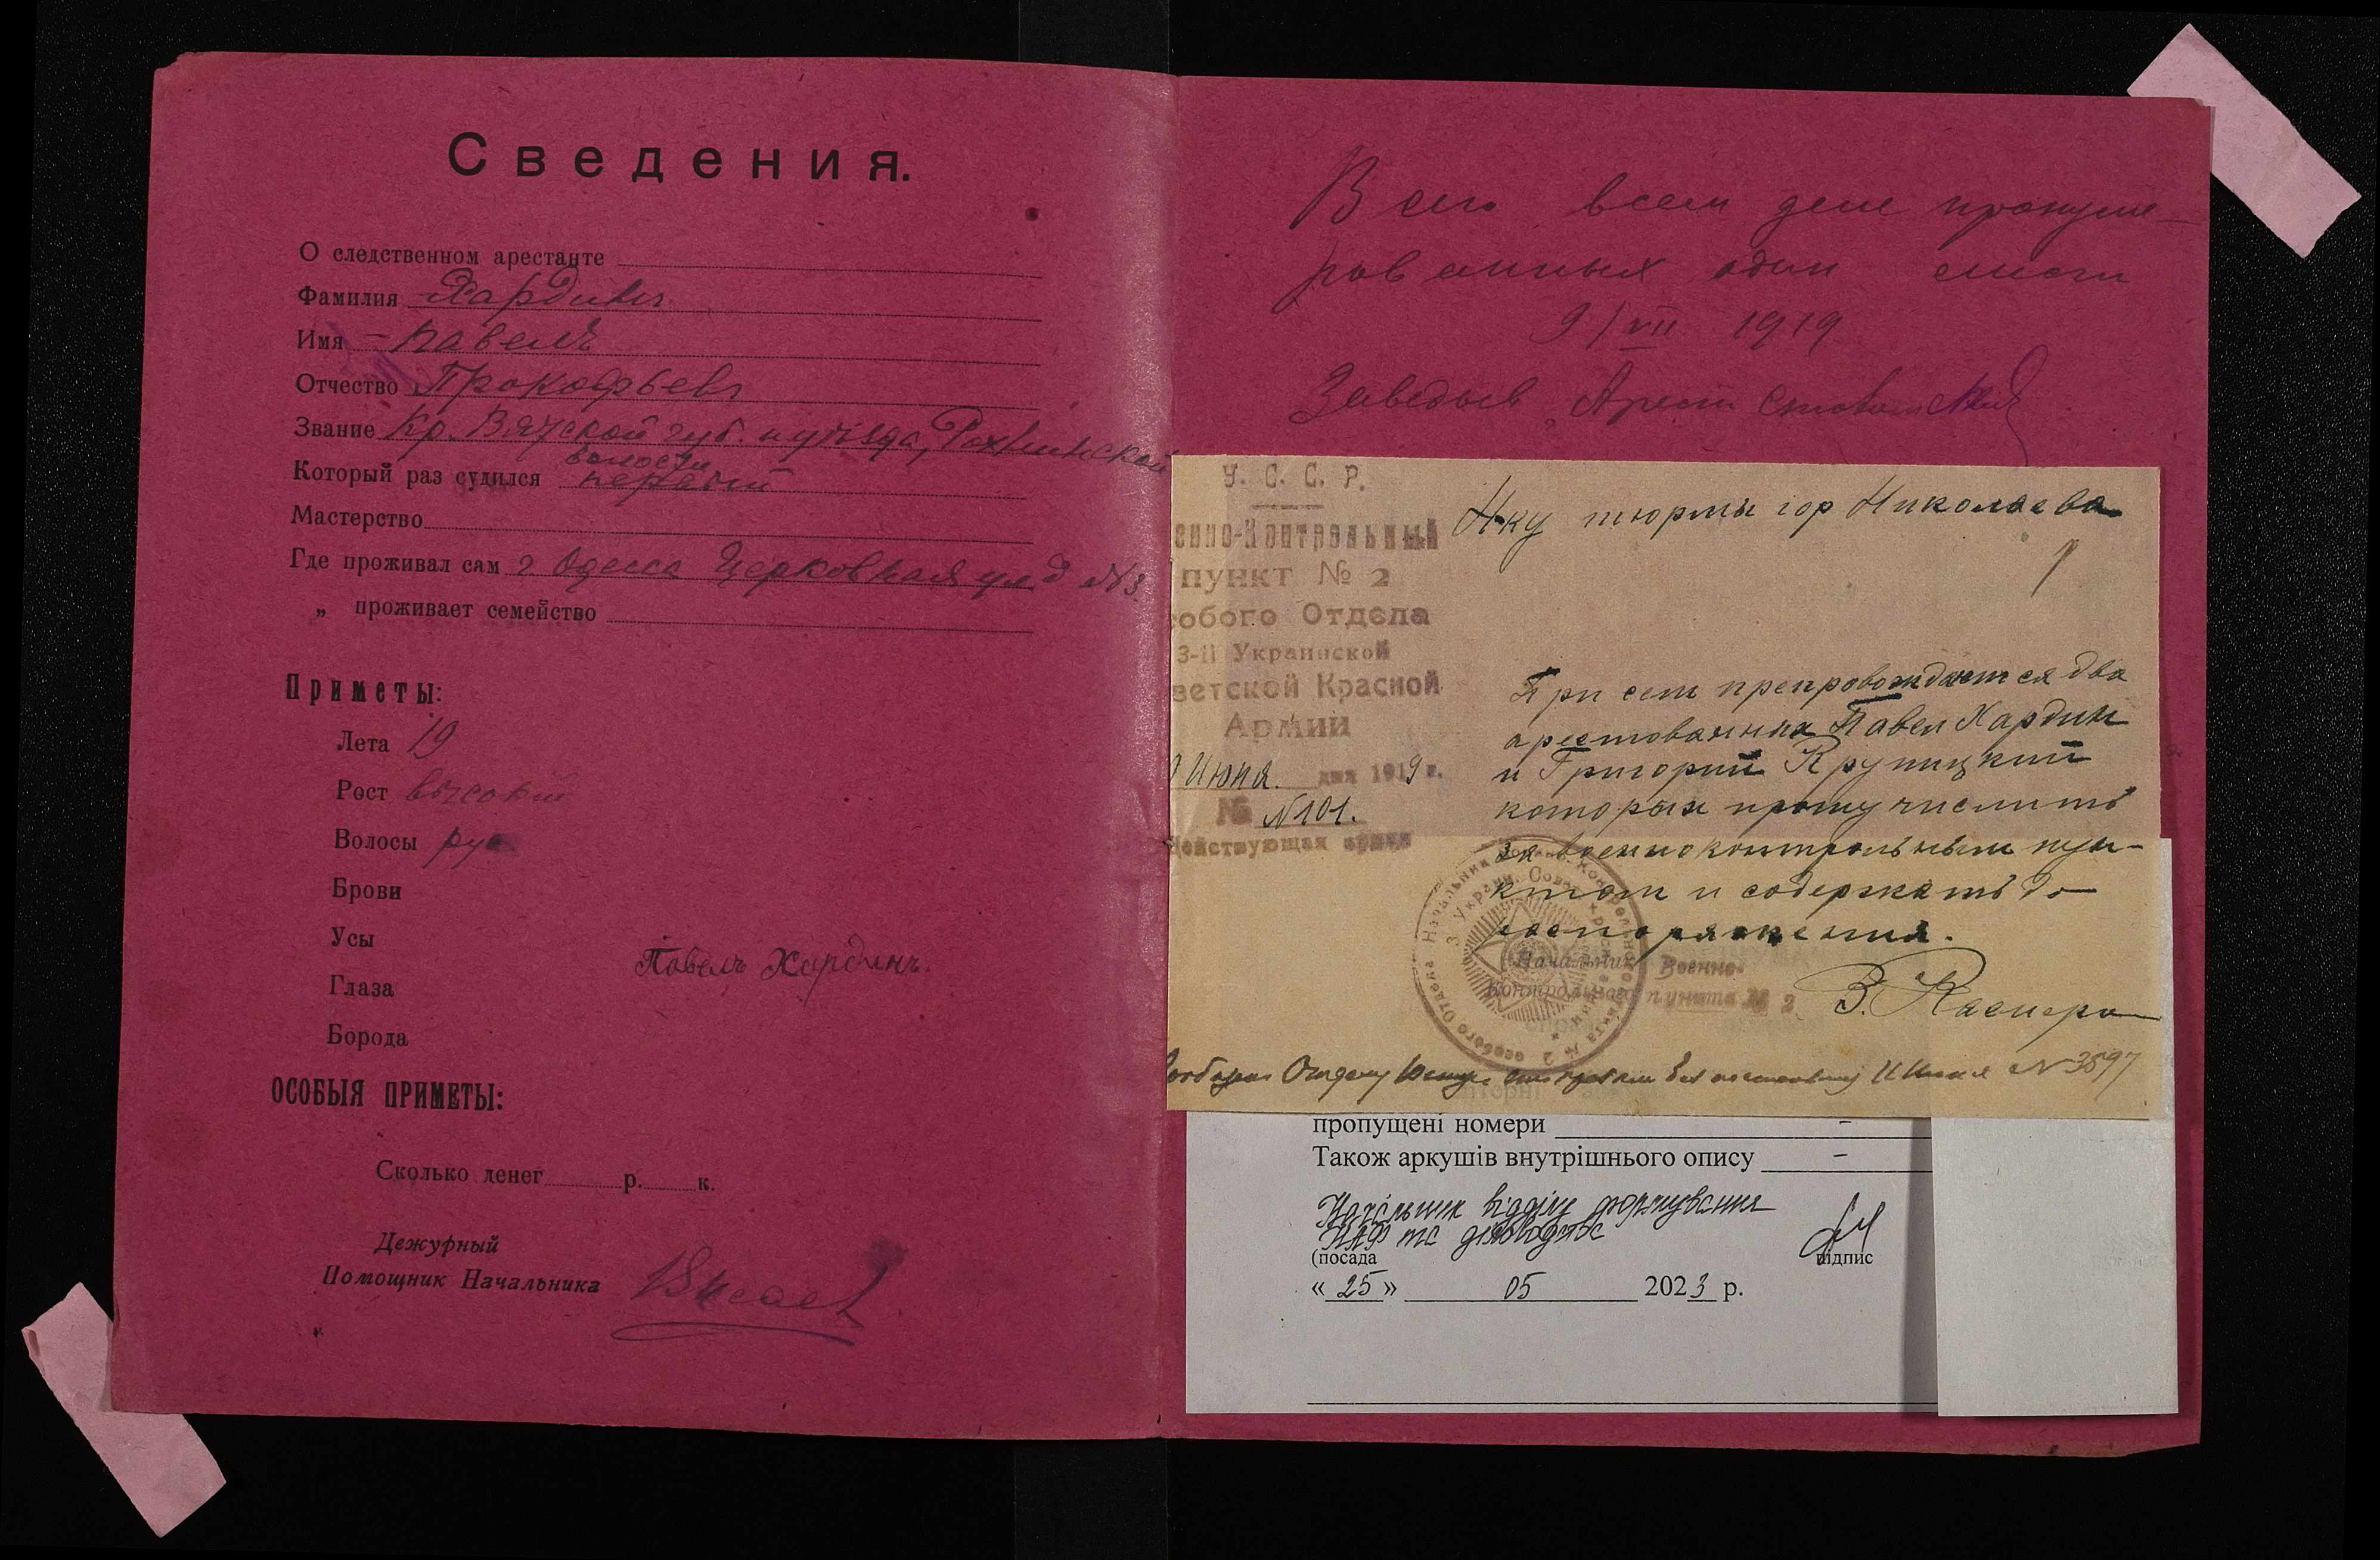 Сведения.
О следственном арестанте
Фамилия Хардинъ
Имя Павелъ
Отчество Прокофьевъ
Звание Кр. Вятской губ. и уѣзда,
волости
Который раз судился первый
Мастерство
Где проживал сам г Одесса Церковная ул д №3
„ проживает семейство
Приметы:
Лета 19
Рост высокий
Волосы рус
Брови
Усы
Глаза
Борода
Павелъ Хардинъ.
ОСОБЫЯ ПРИМЕТЫ:
Сколько денег р. к.
Дежурный
Помощник Начальника
Всего всем деле пронуме-
рованных один
9/VII 1919
Арест
У. С. С. Р.
енно-Контрольный
пункт № 2
собого Отдела
3-й Украинской
ветской Красной
Армии
Июня. дня 1919 г.
№ №101.
Действующая армия
Н-ку тюрмы гор Николаева
При сем препровождаются два
арестованных Павел Хардин
и Григорий Крупицкий
которых прошу числить
за военноконтрольным пун-
ктом и содержать до
распоряжения.
Начальник Военно-
Контрольного пункта № 2
В.
№ 3597
пропущені номери –
Також аркушів внутрішнього опису –
Начальник відділу формування
НАФ та діловодства
(посада підпис
« 25 » 05 2023 р.